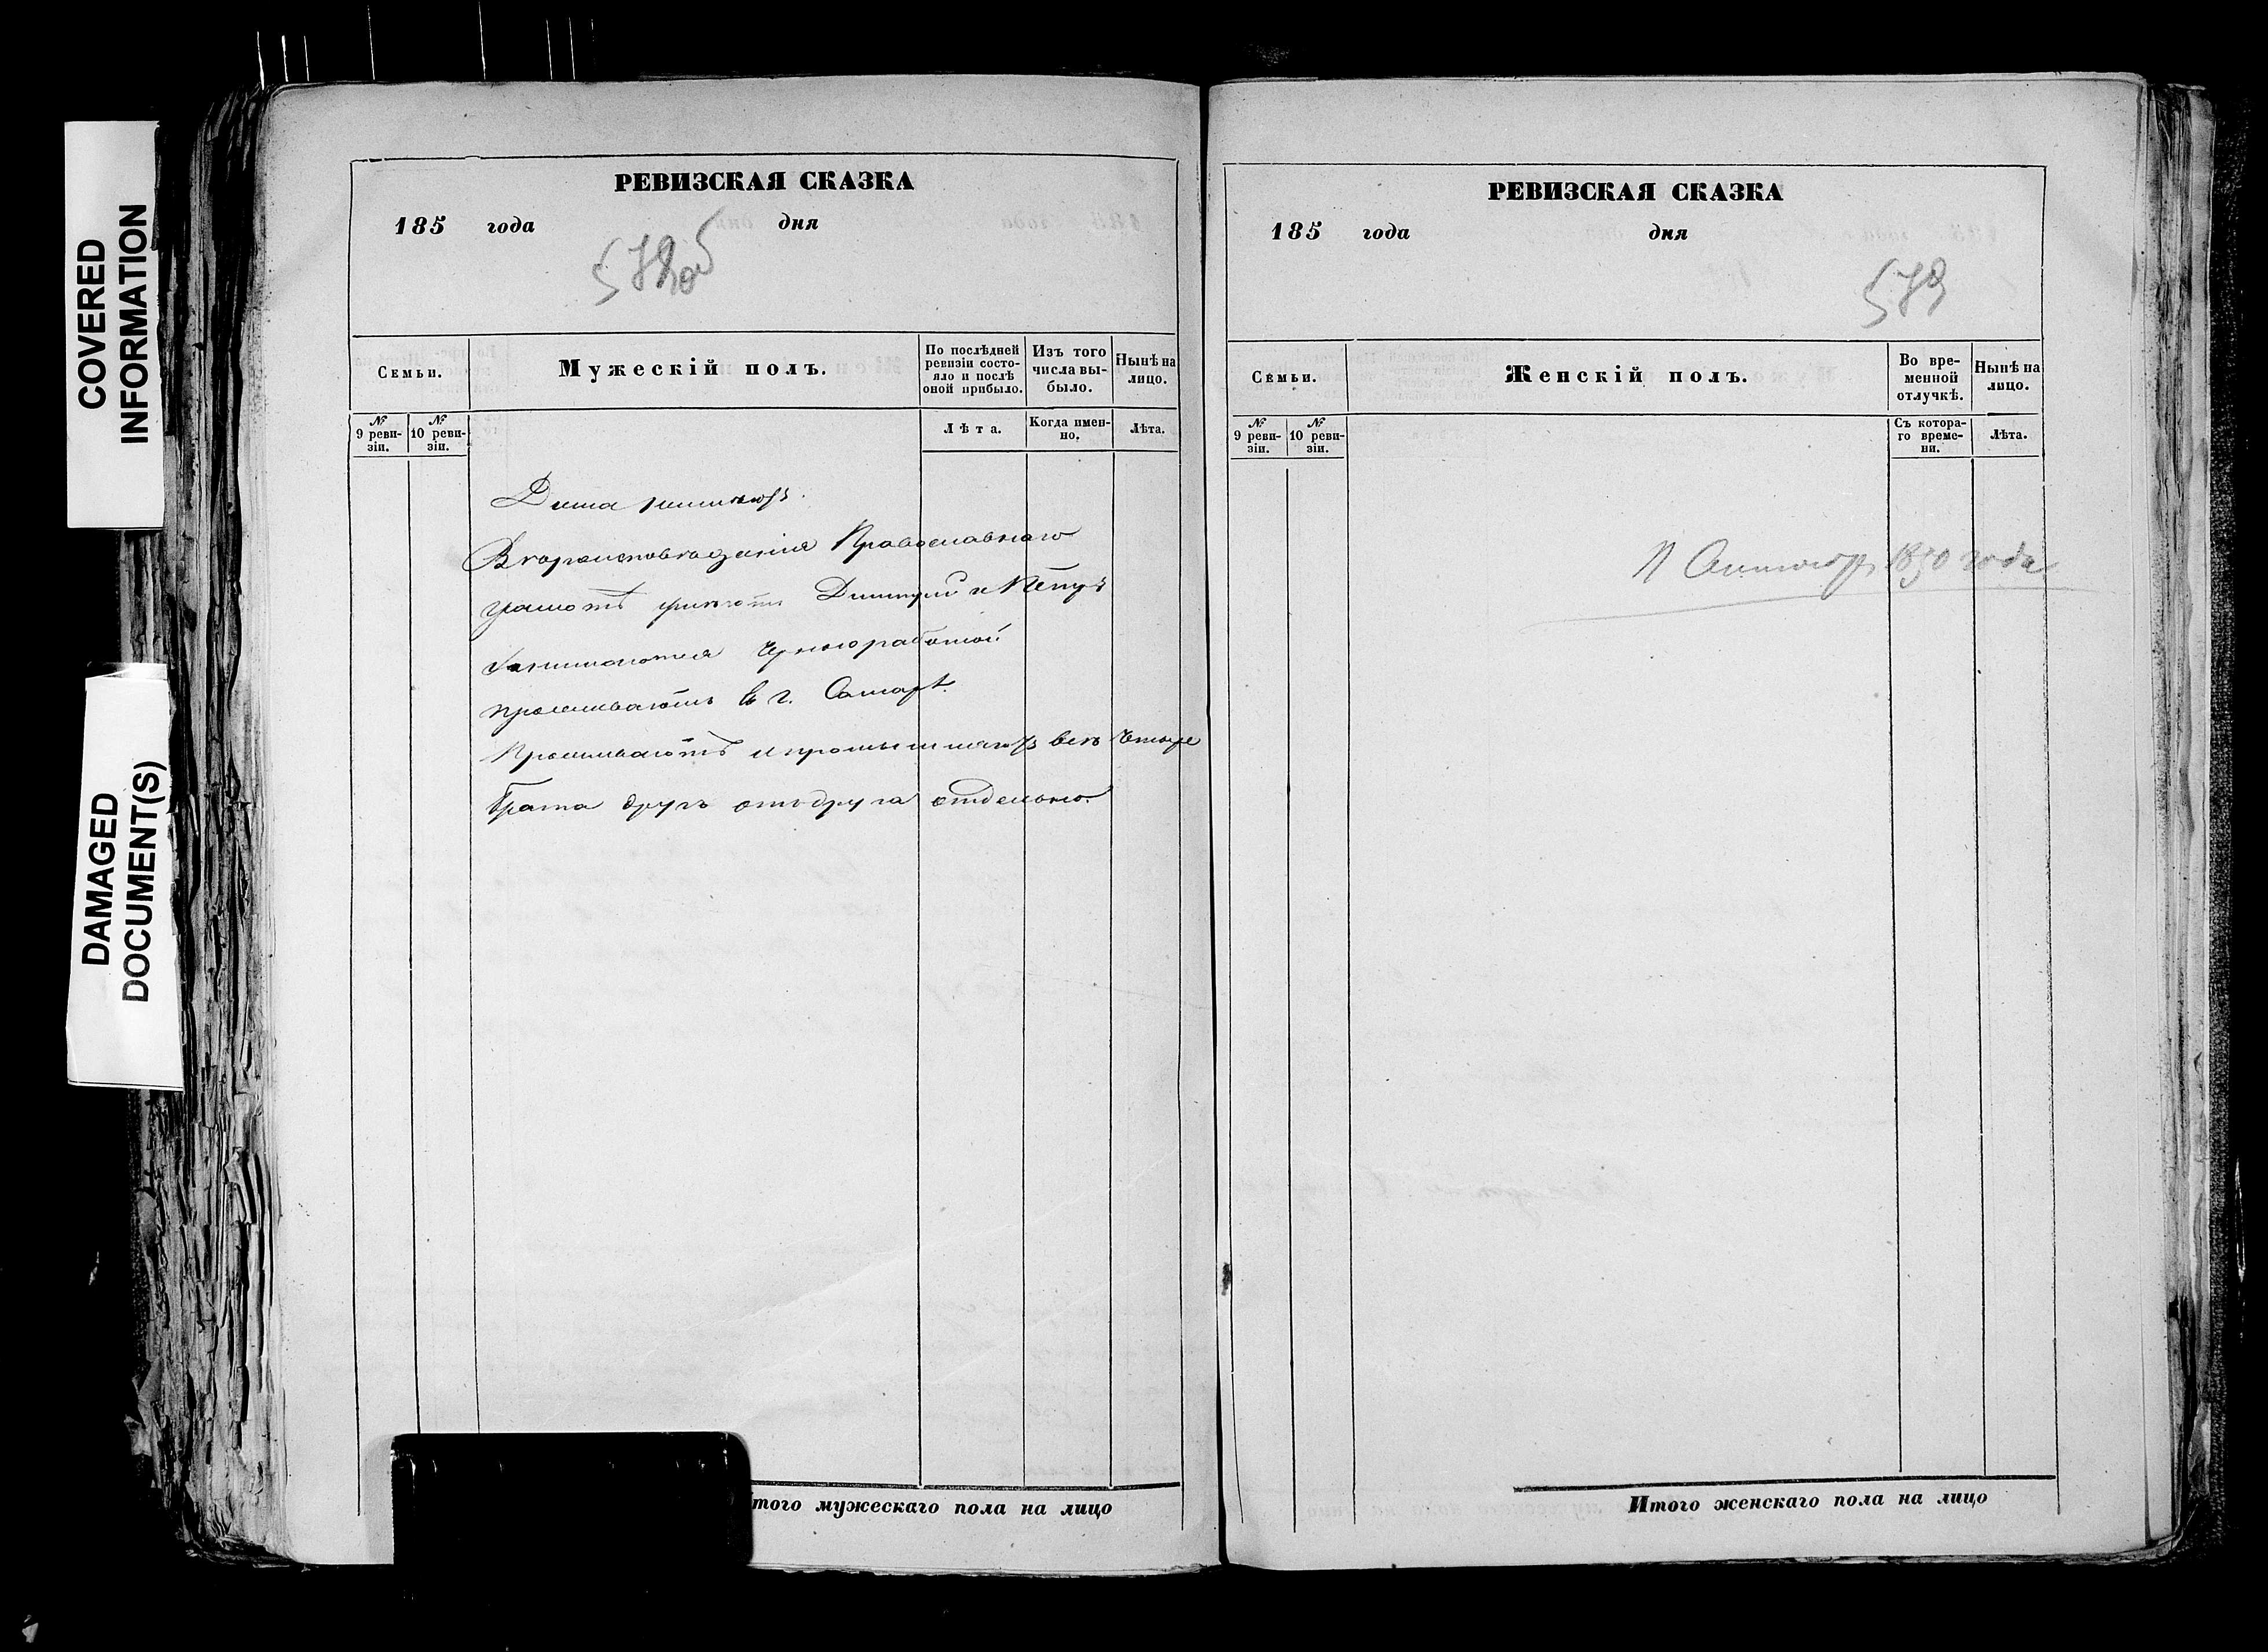 COVERED
INFORMATION
DAMAGED
DOCUMENT(S)
РЕВИЗСКАЯ СКАЗКА
185 года дня
578об
Семьи.
Мужескій полъ.
По послѣдней ревизіи состо-
яло и послѣ
оной прибыло.
Изъ того
числа вы-
было.
Нынѣ на
лицо.
№
9 реви-
зіи.
№
10 реви-
зіи.
Лѣта.
Когда имен-
но.
Лѣта.
Дома имѣютъ.
Вѣроисповѣданія Православнаго
грамотѣ умѣютъ Димитрій и Петръ
Занимаются Чернοработой
проживаютъ въ г. Самарѣ.
Проживаютъ и промышляютъ всѣ Четыре
брата другъ отъ друга отдельно.
Итого мужескаго пола на лицо
РЕВИЗСКАЯ СКАЗКА
185 года дня
579
Семьи.
Женскій полъ.
Во вре-
менной
отлучкѣ.
Нынѣ на
лицо.
№
9 реви-
зіи.
№
10 реви-
зіи.
Съ котора-
го време-
ни.
Лѣта.
1850 года
Итого женскаго пола на лицо